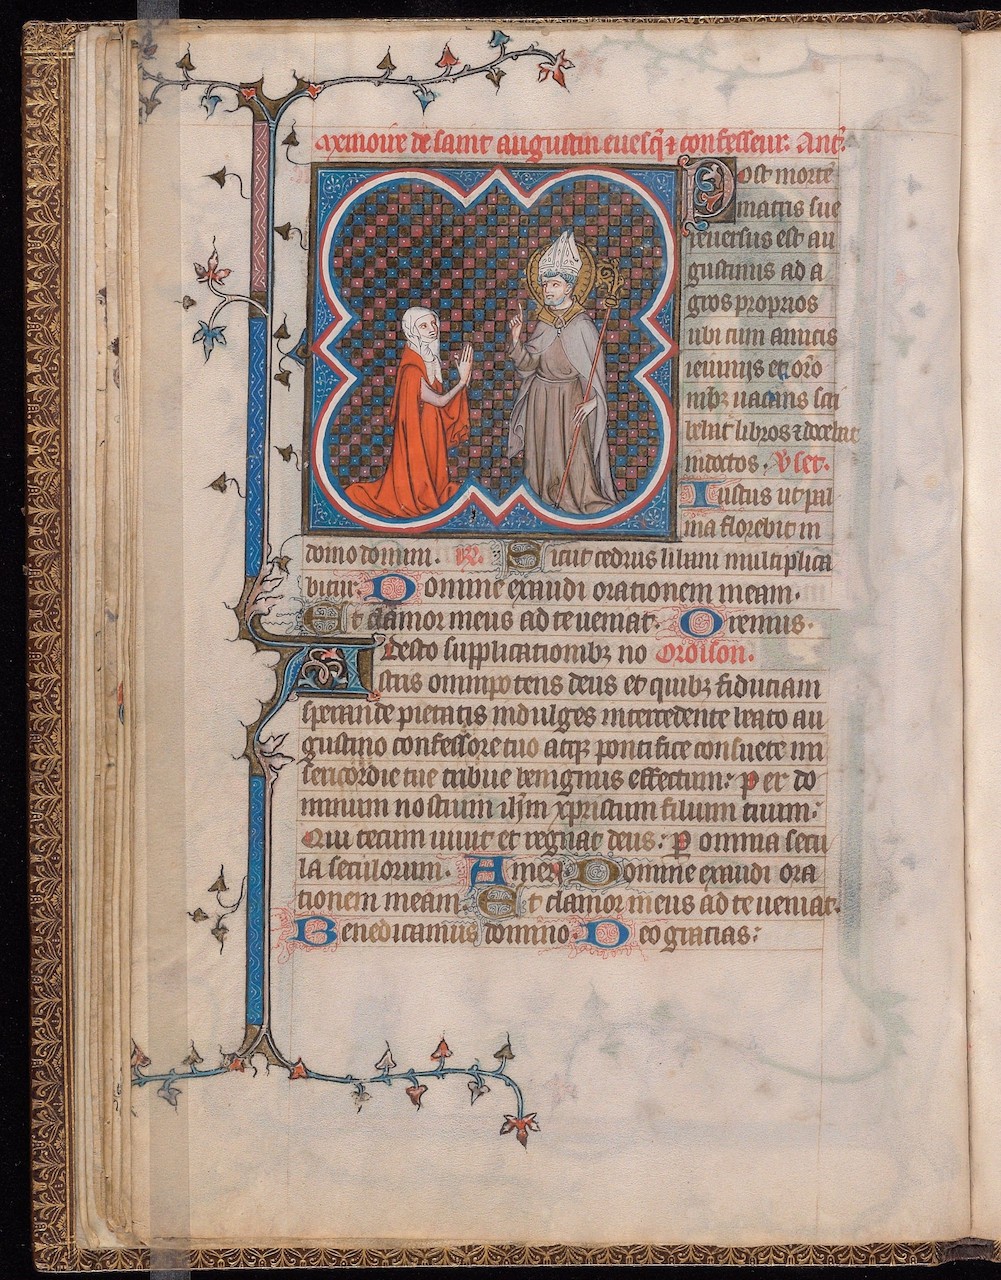 Memoire de saint augustin euesq̃ ⁊ confesseur. Ant̃.
Post mortẽ
matris sue
reuersus est au
gustinus ad a
gros proprios
ubi cum amicis
ieiunijs et orõ
nibꝫ uacans scri
bebat libros ⁊ docebat
indoctos. V̷ set.
Iustus ut pal
ma florebit in
domo domini. R̷. Sicut cedrus libani multiplica
bitur. Domine exaudi orationem meam.
Et clamor meus ad te ueniat. Oremus.
Adesto supplicationibꝫ no Oroison.
stris omnipotens deus et quibꝫ fiduciam
sperande pietatis indulges intercedente beato au
gustino confessore tuo atqꝫ pontifice consuete mi
sericordie tue tribue benignus effectum. per do
minum nostrum ihm̃ xpristum filium tuum.
Qui tecum uiuit et regnat deus. ꝑ omnia secu
la seculorum. Amen. Domine exaudi ora
tionem meam. Et clamor meus ad te ueniat.
Benedicamus domino. Deo gracias.